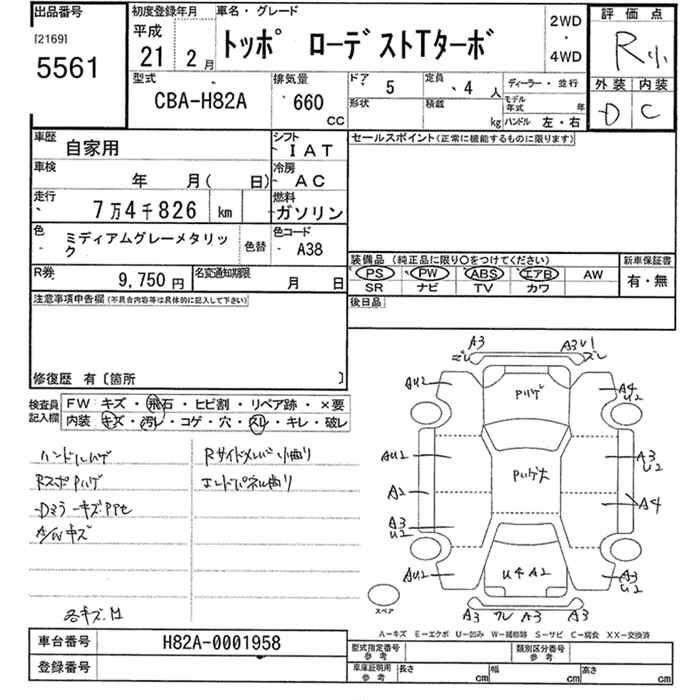 出品番号 初度登録年月 車名・グレード 評価点
[2169] 平成 2WD
5561 21年 2月 トッポ ローデストTターボ ・ R小
4WD
型式 排気量 ドア 5 定員 4人 ディーラー・並行 外装 内装
CBA-H82A 660 形状 積載 モデル年式 年 D C
cc kg ハンドル 左・右
車歴 自家用 シフト IAT セールスポイント(正常に機能するものに限ります)
車検 年 月( 日) 冷房 AC
走行 7万4千826 km 燃料 ガソリン
色 ミディアムグレーメタリック 色替 色コード A38
装備品(純正品に限り○をつけてください) 新車保証書
R券 9,750円 名変通知期限 月 日 PS PW ABS エアB AW 有・無
SR ナビ TV カワ
注意事項申告欄(不具合内容等は具体的に記入して下さい) 後日品
修復歴 有〔箇所 〕
検査員記入欄 FW キズ・飛石・ヒビ割・リペア跡・×要
内装 キズ・汚レ・コゲ・穴・スレ・キレ・破レ
A3 A3U1
ズレ ズレ
AU2 Pハゲ A4
U2
ハンドルハゲ Rサイドメンバ小曲り
RスポPハゲ エンドパネル曲り
AU2 Pハゲ大 A3
U2
Dミラーキズ
A2 A4
A/Wキズ
A3
U2
AU2 U4A2 A3
U2
各キズ凹 スペア
A3 ワレ A3 A3
A－キズ E－エクボ U－凹み W－補修跡 S－サビ C－腐食 XX－交換済
車台番号 H82A-0001958 型式指定番号 参考 類別区分番号 参考
登録番号 車庫証明用 参考 長さ cm 幅 cm 高さ cm